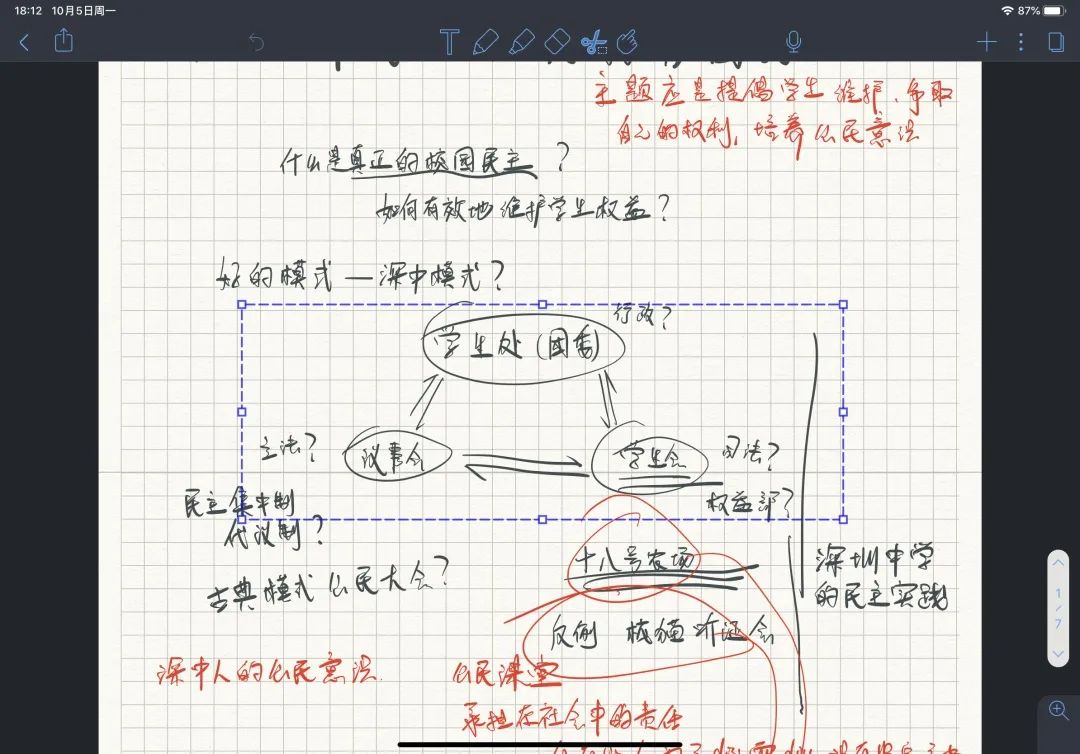 18:12 10月5日周一
87%
主题应是提倡学生维护、争取
自己的权利，培养公民意识
什么是真正的校园民主？
如何有效地维护学生权益？
好的模式—深中模式？
行政？
学生处（团委）
立法？
议事会
学生会
司法？
权益部？
民主集中制
代议制？
古典模式 公民大会？
十八号农场
深圳中学
的民主实践
反例 校猫听证会
深中人的公民意识.
公民课堂
承担在社会中的责任
1/7